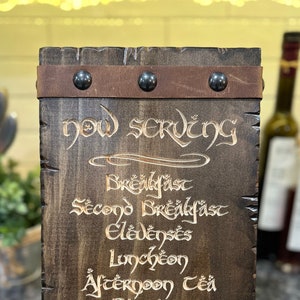 Now Serving
Breakfast
Second Breakfast
Elevenses
Luncheon
Afternoon Tea